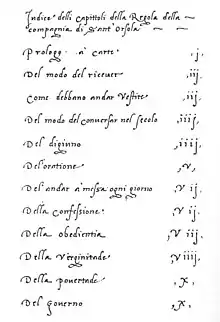 Indice delli Capittoli della Regola della
compagnia di Sant' Orsola
Prologo à carte ,j.
Del modo del riceuer ,iij.
Come debbano andar Vestite ,iij.
Del modo del conuersar nel secolo ,iiij.
Del digiuno ,iiij.
Del'oratione ,v.
Del andar à messa ogni giorno ,Vij.
Della Confessione ,Vij.
Della obedientia ,Viij.
Della Verginitade ,Viiij.
Della pouertade ,X.
Del gouerno ,X.